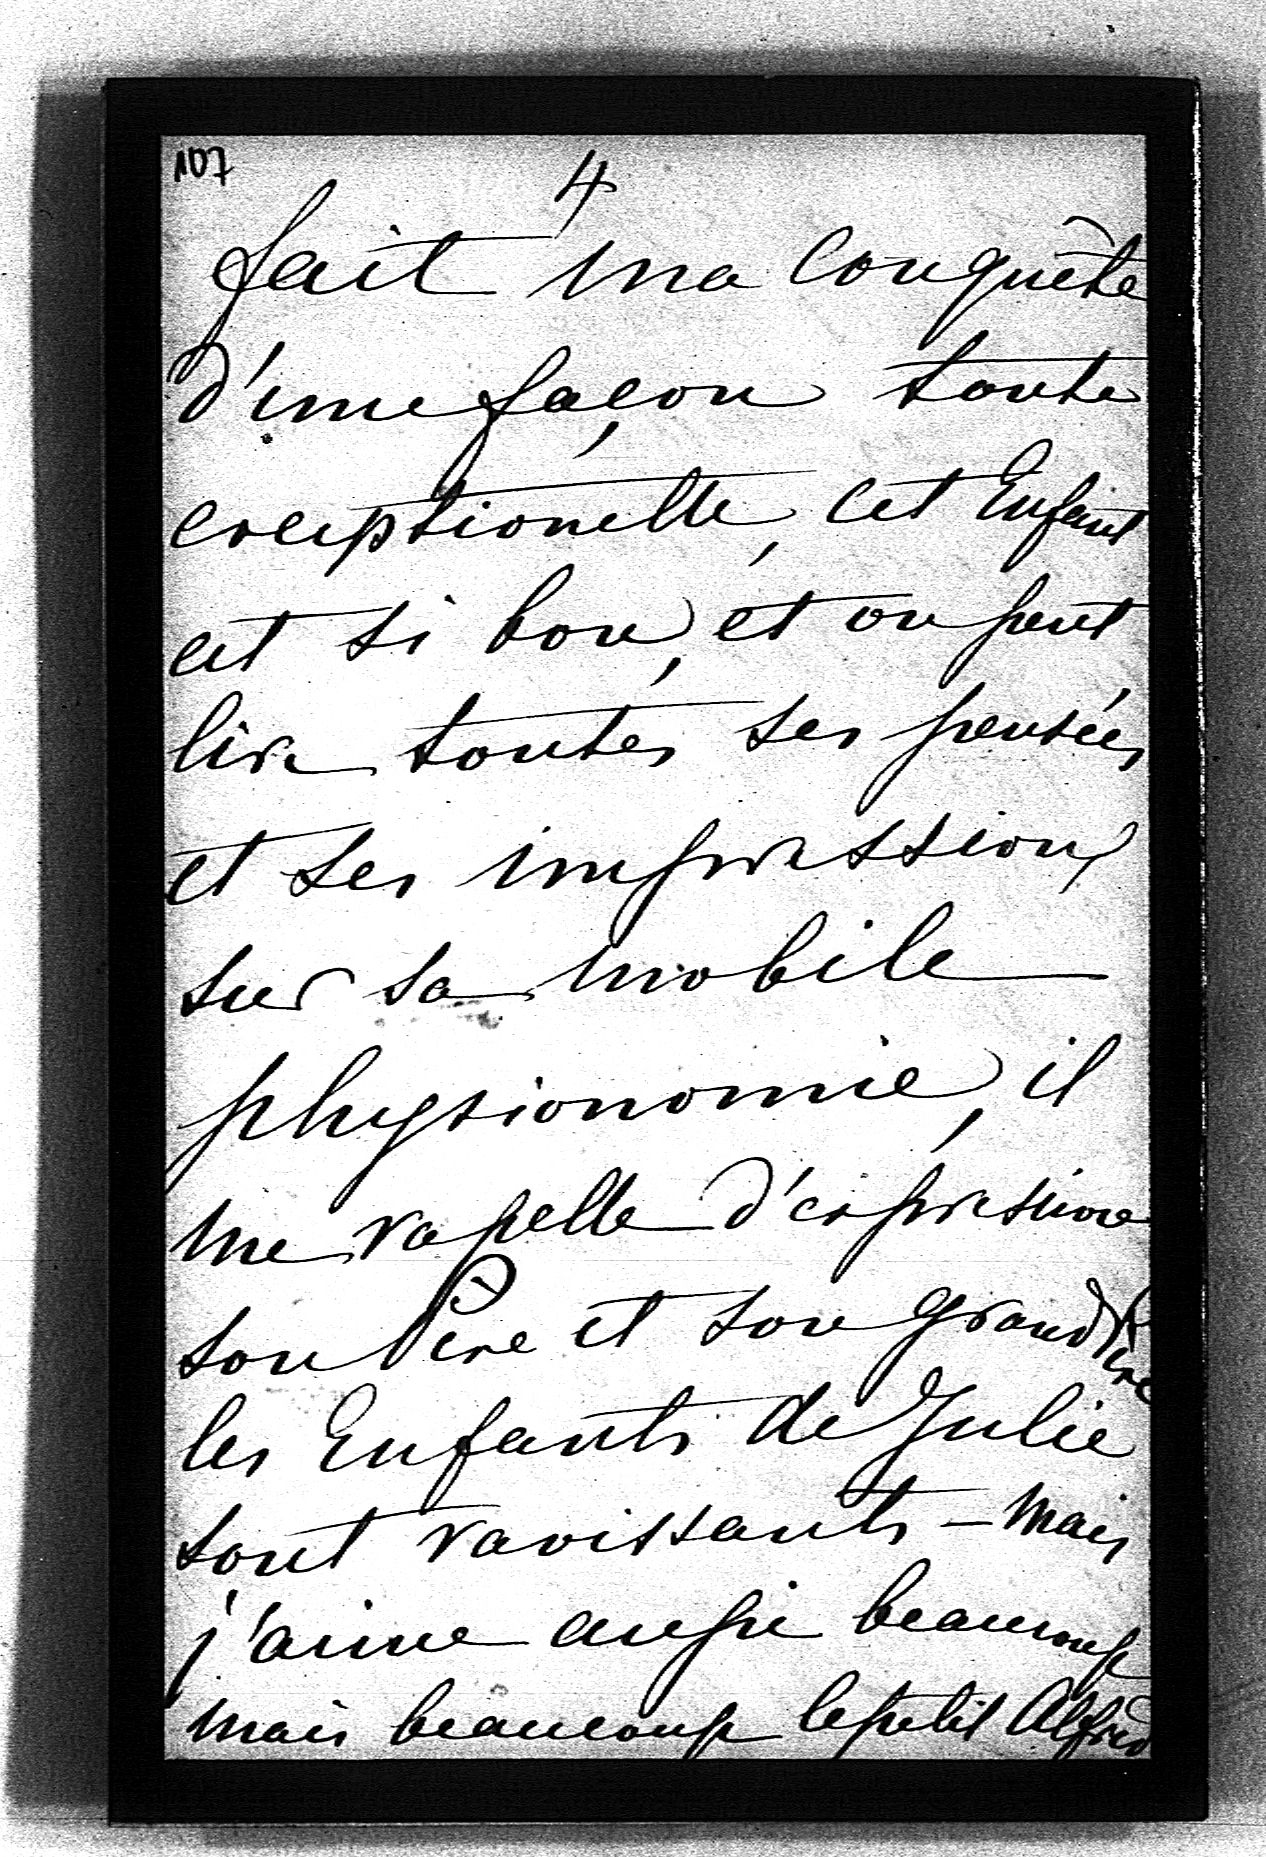 107
4
fait ma conquête
d'une façon toute
exceptionelle, cet Enfant
est si bon, et on peut
lire toutes ses pensées
et ses impressions
sur sa mobile
physionomie, il
me rapelle d'expression
son Père et son grand Père
les Enfants de Julie
sont ravissants - mais
j'aime aussi beaucoup
mais beaucoup le petit Alfred